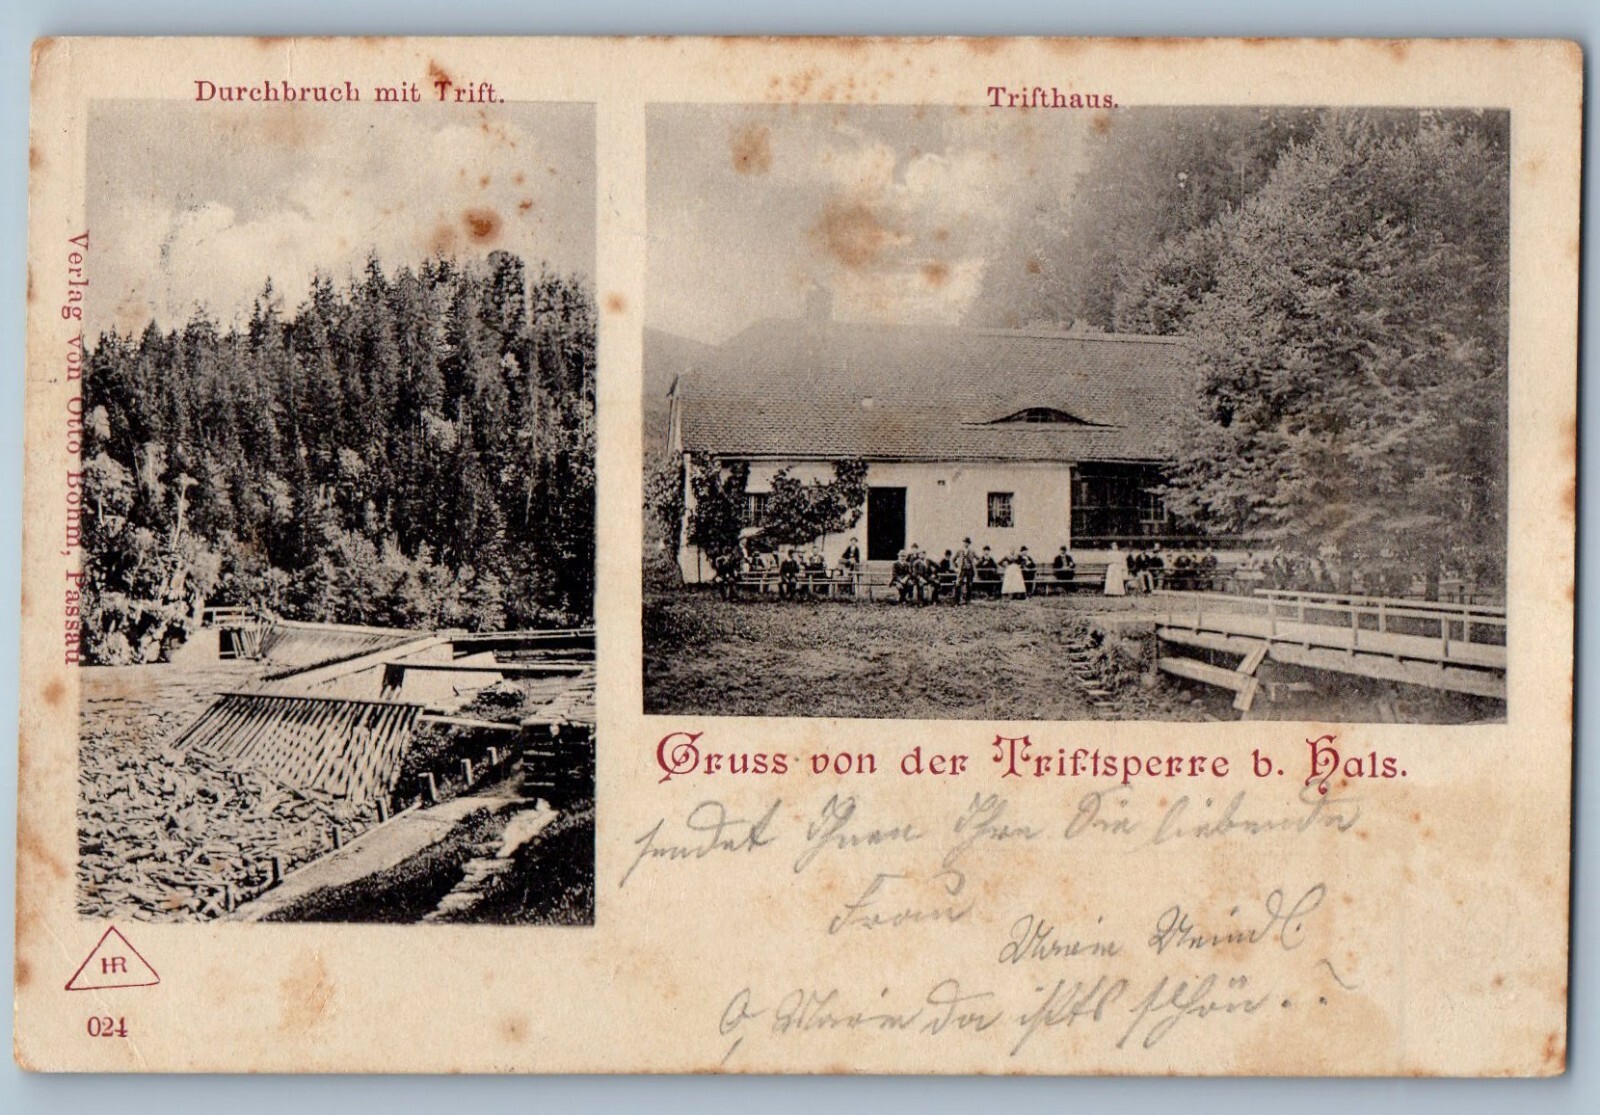 Durchbruch mit Trift.
Trifthaus.
Verlag von Otto Böhm, Passau
Gruss von der Triftsperre b. Hals.
sendet Ihnen Ihre Sie liebende
Frau
Maria
O Maria da ists schön..
HR
024